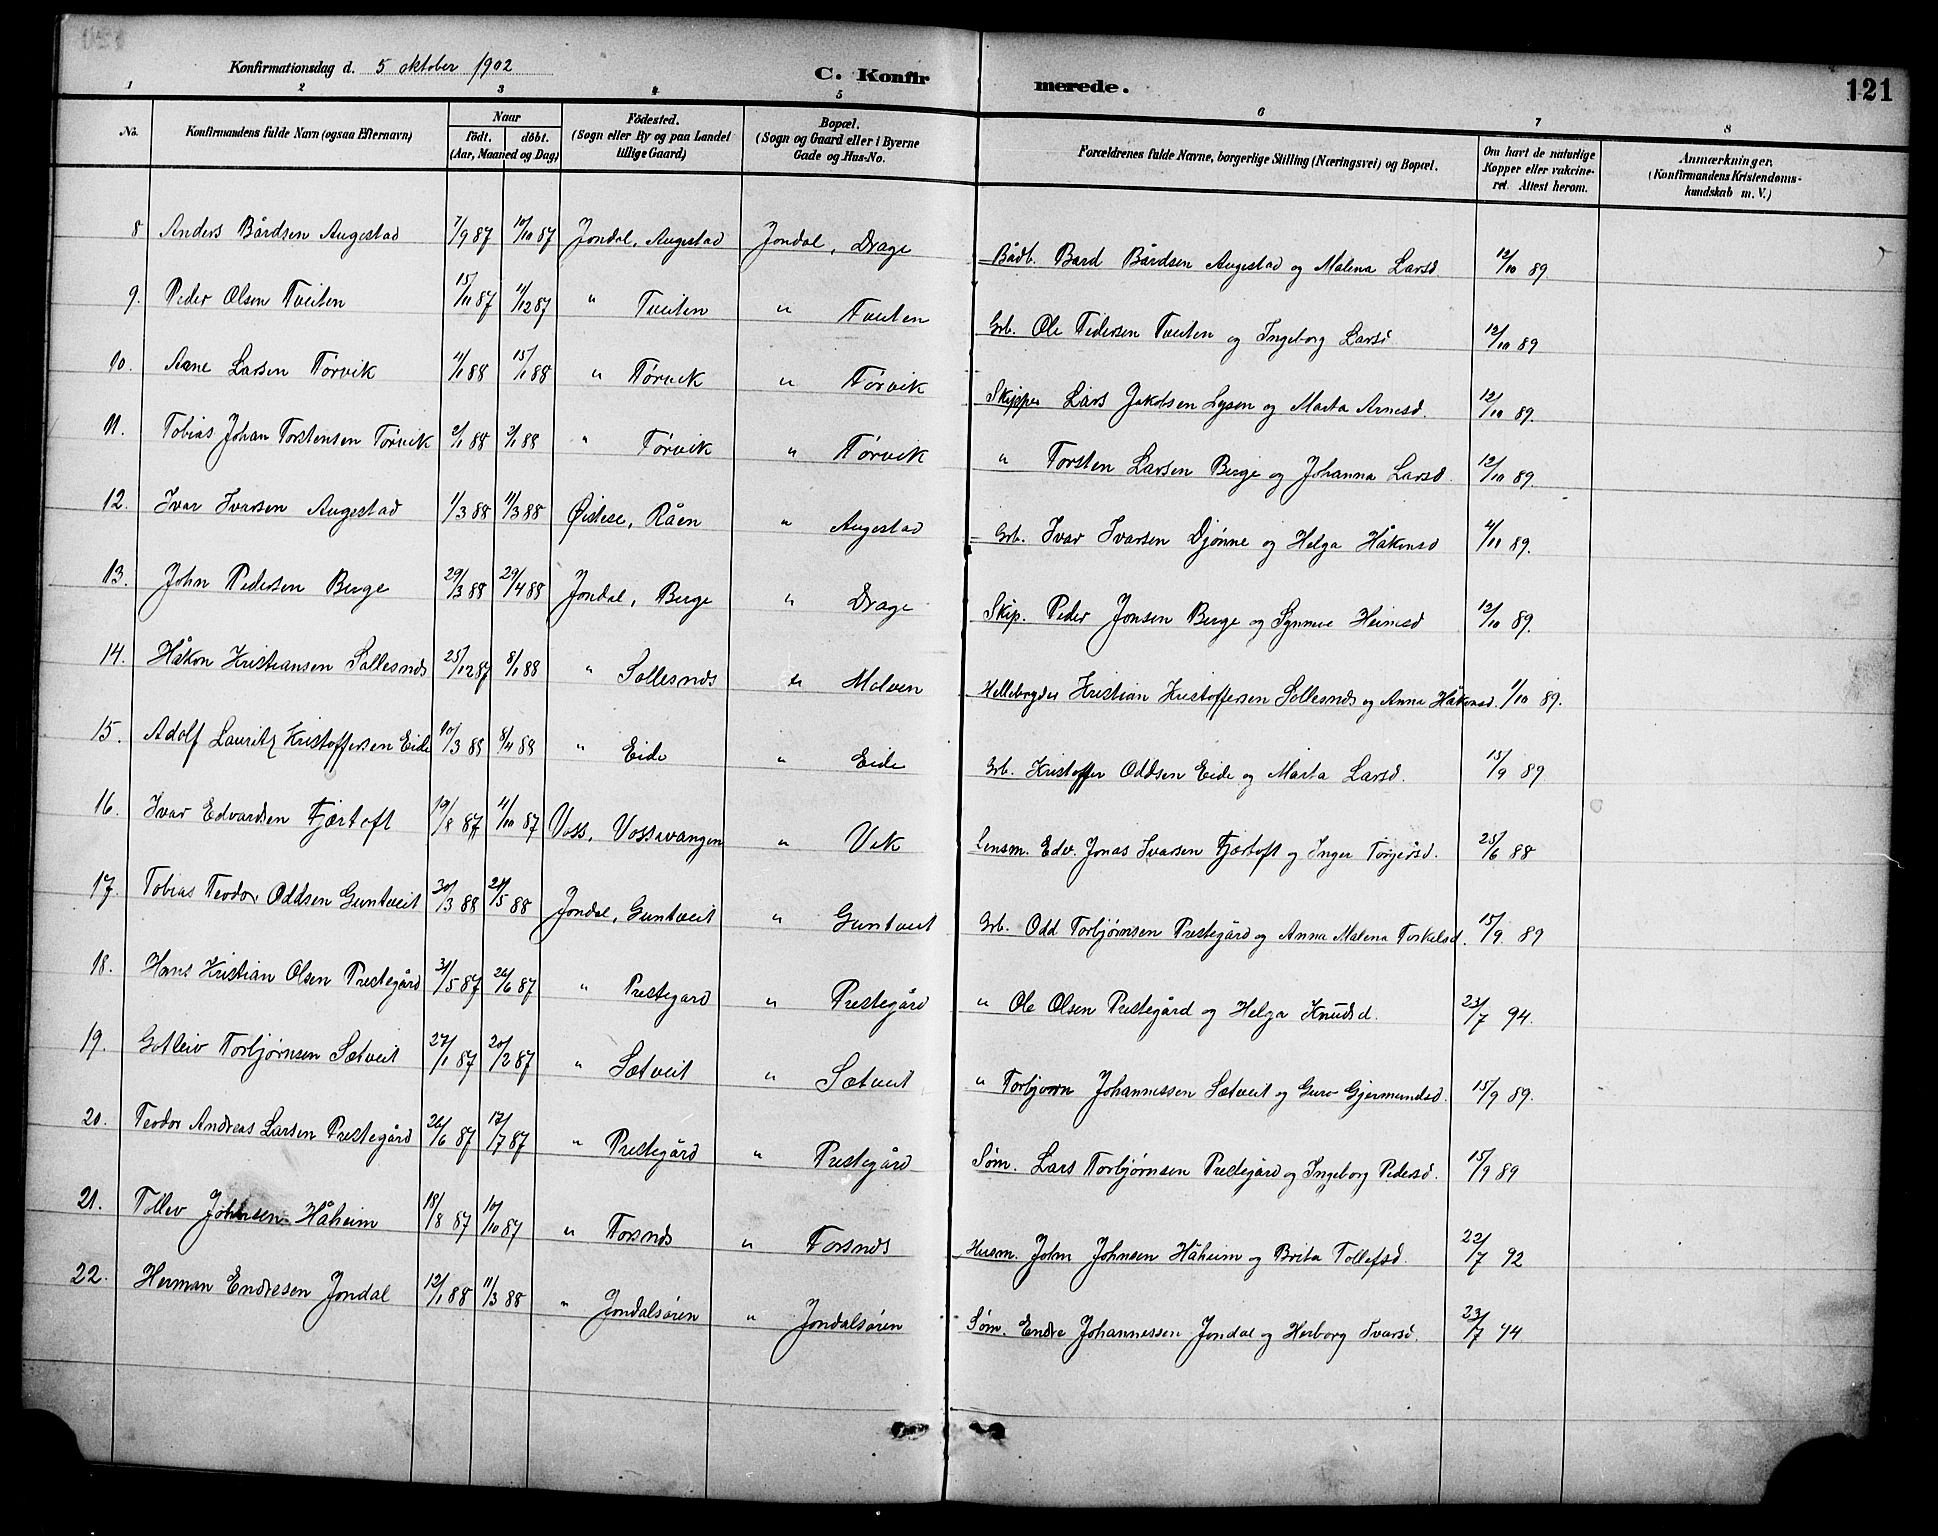 Konfirmationsdag d. 5 oktober 1902 C. Konfirmerede. 121
1 2 3 4 5 6 7 8
No. Konfirmandens fulde Navn (ogsaa Efternavn) Naar födt. döbt. (Aar, Maaned og Dag) Födested. (Sogn eller By og paa Landet tillige Gaard) Bopæl. (Sogn og Gaard eller i Byerne Gade og Hus-No. Forældrenes fulde Navne, borgerlige Stilling (Næringsvei) og Bopæl. Om havt de naturlige Kopper eller vakcineret. Attest herom. Anmærkninger. (Konfirmandens Kristendomskundskab m. V.)
8 Anders Bårdsen Augestad 7/9 87 10/10 87 Jondal, Augestad Jondal, Drage Bådb. Bård Bårdsen Augestad og Malena Larsd 12/10 89.
9. Peder Olsen Tveiten 15/11 87 11/12 87 " Tveiten " Tveiten Grb. Ole Pedersen Tveiten og Ingeborg Larsd 12/10 89
10. Arne Larsen Tørvik 11/1 88 15/1 88 " Tørvik " Tørvik Skipper Lars Jakobsen Lysen og Marta Arnesd. 12/10 89.
11. Tobias Johan Torstensen Tørvik 2/1 88 2/1 88 " Tørvik " Tørvik " Torsten Larsen Berge og Johanna Larsd. 12/10 89.
12. Ivar Ivarsen Augestad 1/3 88 11/3 88 Øistese, Råen " Augestad Grb. Ivar Ivarsen Djønne og Helga Håkonsd 4/11 89.
13. John Pedersen Berge 29/3 88 29/4 88 Jondal, Berge " Drage Skip. Peder Jonsen Berge og Synneve Heinesd 12/10 89.
14. Håkon Kristiansen Sollesnæs 25/12 87 8/1 88 " Sollesnæs " Molven Hellebryder Kristian Kristoffersen Sollesnæs og Anna Håkonsd. 1/10 89.
15. Adolf Lauritz Kristoffersen Eide 10/3 88 8/4 88 " Eide " Eide Grb. Kristoffer Oddsen Eide og Marta Larsd. 15/9 89
16. Ivar Edvardsen Fjærtoft 19/8 87 11/10 87 Voss, Vossevangen " Vik Lensm. Edv. Jonas Ivarsen Fjærtoft og Inger Torgersd. 25/6 88
17. Tobias Teodor Oddsen Guntveit 30/3 88 21/5 88 Jondal, Guntveit " Guntveit Grb. Odd Torbjørnsen Prestegård og Anna Malena Torkelsd. 15/9 89
18. Hans Kristian Olsen Prestegård 31/5 87 26/6 87 " Prestegard " Prestegård " Ole Olsen Prestegård og Helga Knudsd. 23/7 94.
19. Gotleiv Torbjørnsen Sætveit 27/1 87 20/2 87 " Sætveit " Sætveit " Torbjørn Johannessen Sætveit og Guro Gjermundsd. 15/9 89.
20. Teodor Andreas Larsen Prestegård 26/6 87 17/7 87 " Prestegård " Prestegård Søm. Lars Torbjørnsen Prestegård og Ingeborg Pedersd. 15/9 89
21. Tollev Johnsen Håheim 18/8 87 10/10 87 " Torsnæs " Torsnæs Husm. John Johnsen Håheim og Brita Tollefsd. 22/7 92
22. Herman Endresen Jondal 12/1 88 11/3 88 " Jondalsøren " Jondalsøren Søm. Endre Johannessen Jondal og Herborg Ivarsd. 23/7 94